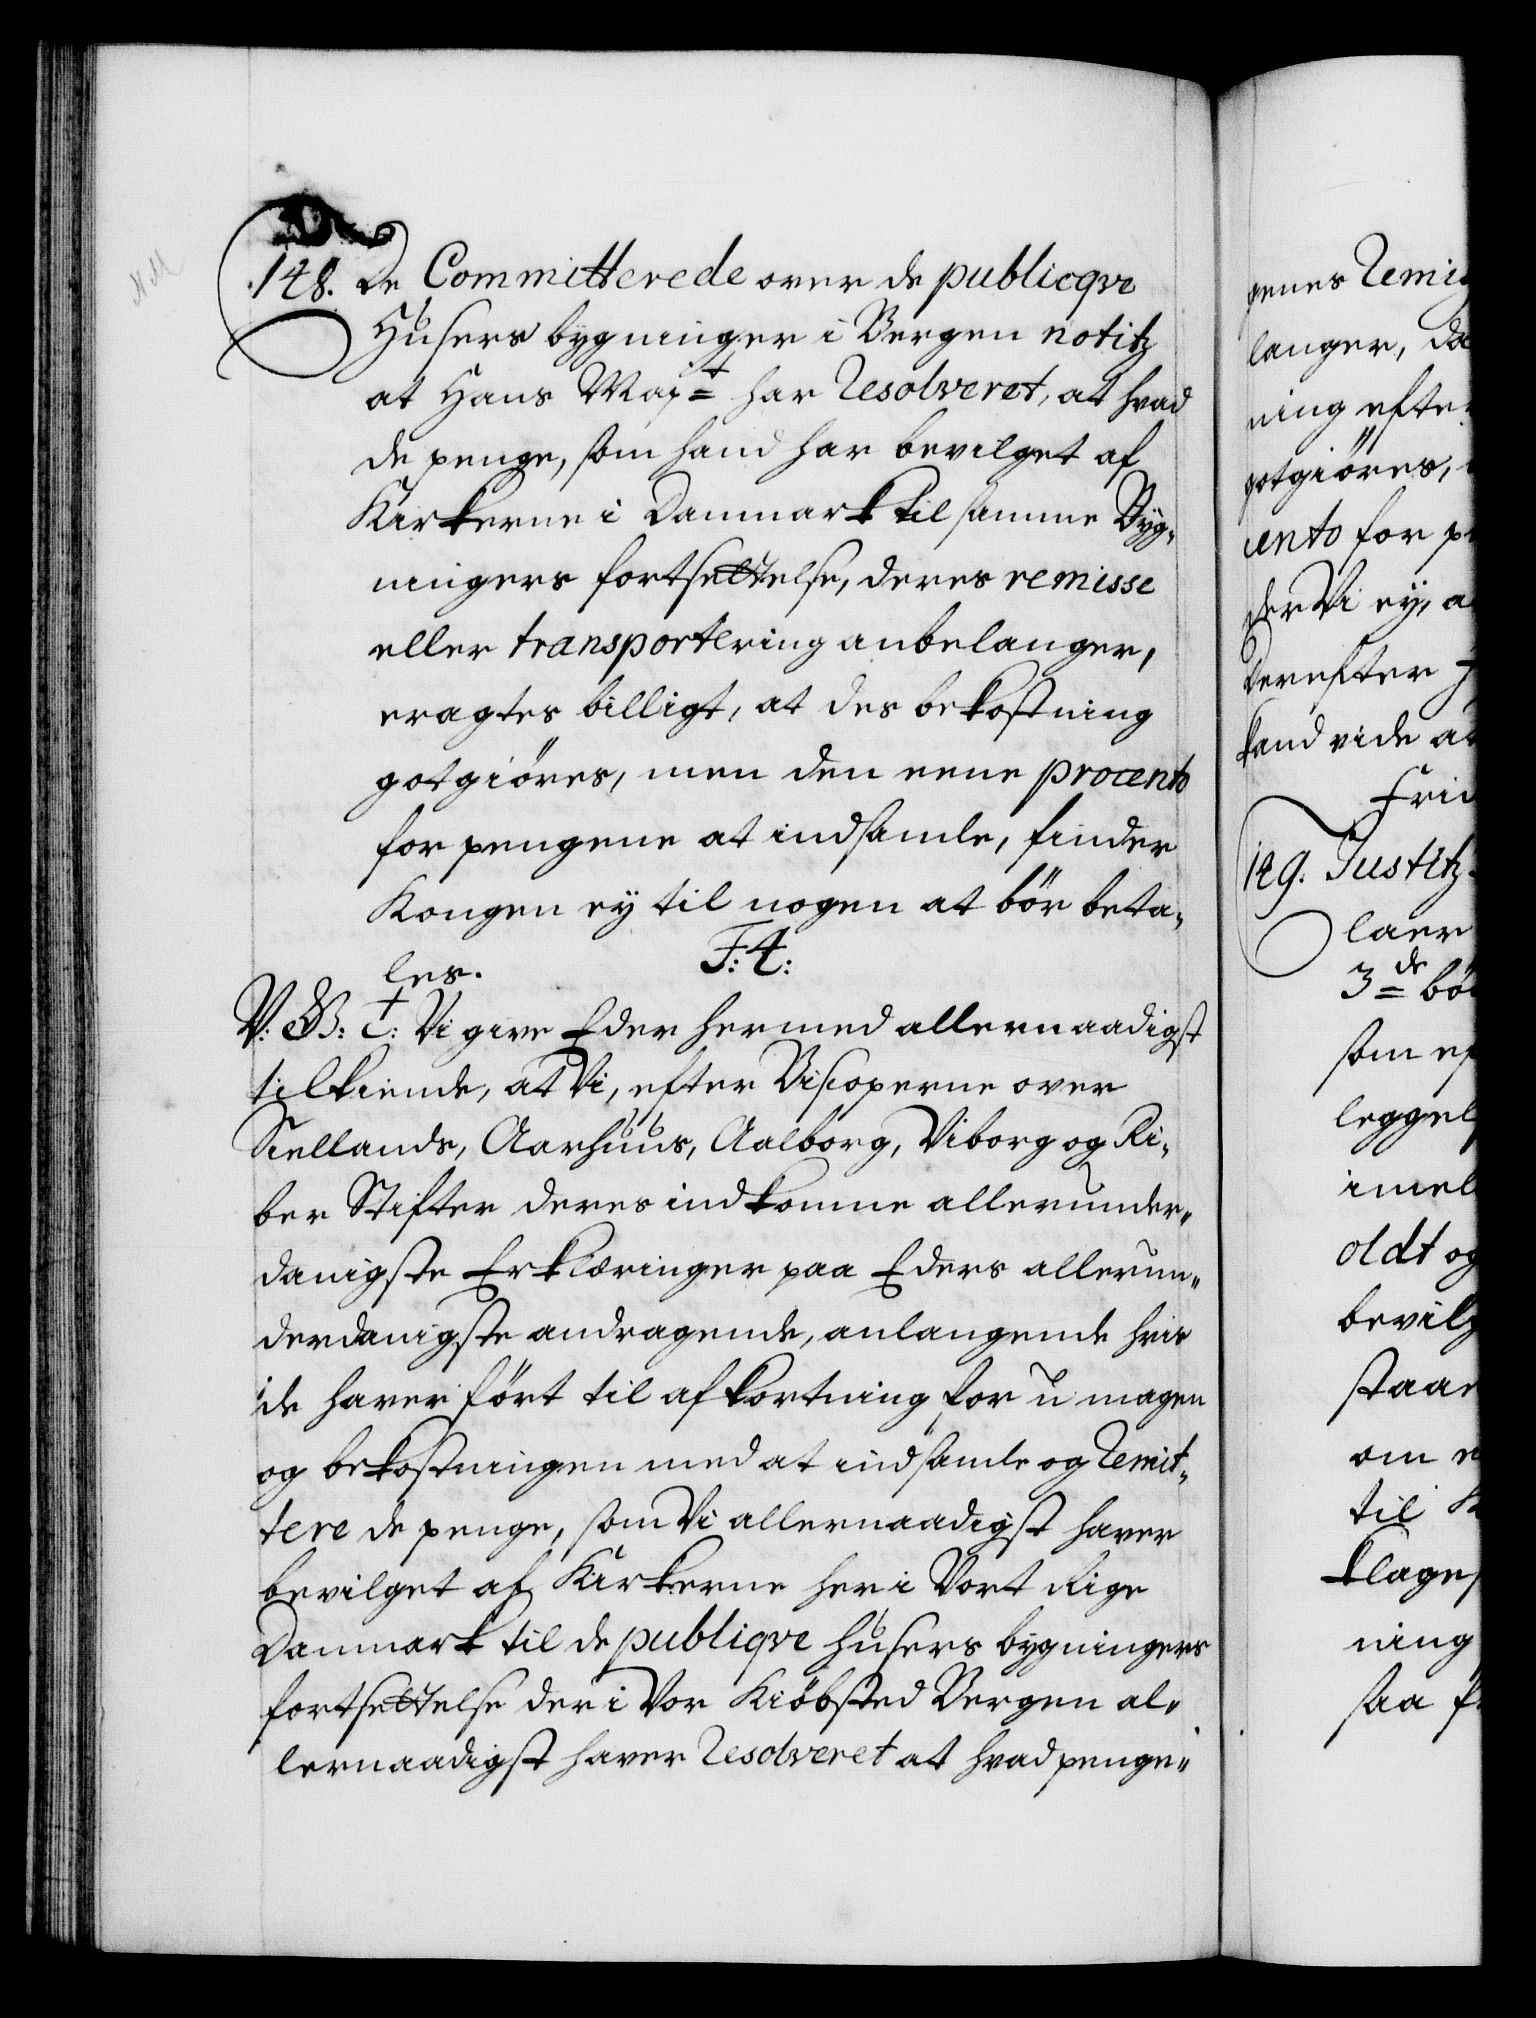 148. De Committerede over de publicqve
Husers bygninger i Bergen notitz
at Hans Maj=t har Resolveret, at hvad
de penge, som hand har bevilget af
Kirkerne i Danmark til samme Byg-
ningers fortsettelse, deres remisse
eller transportering anbelanger,
eragtes billigt, at des bekostning
gotgiöres, men den eene procento
for pengene at indsamle, finder
Kongen ey til nogen at bör beta-
les. F: 4:
V: G: t: Vi give Eder hermed allernaadigst
tilkiende, at Vi, efter Biscoperne over
Siellands, Aarhuus, Aalborg, Viborg og Ri-
ber Stifter deres indkomne allerunder-
danigste Erklæringer paa Eders allerun-
derdanigste andragende, anlangende hvis
de haver fört til afkortning for u magen
og bekostningen med at indsamle og Remit-
tere de penge, som Vi allernaadigst haver
bevilget af Kirkerne her i Vort Rige
Danmark til de publiqve husers bygningers
fortsettelse der i Vor Kiöbsted Bergen al-
lernaadigst haver Resolveret at hvad penge-
genes Remis
langer, da
ning efter
gotgiöres,
cento for p
der Vi ey, a
Derefter
kand vide at
Frid
149. Justitz
laer
3=de bör
som ef
leggel
imel
oldt og
bevilg
staar
om
til
klage
ning
saa